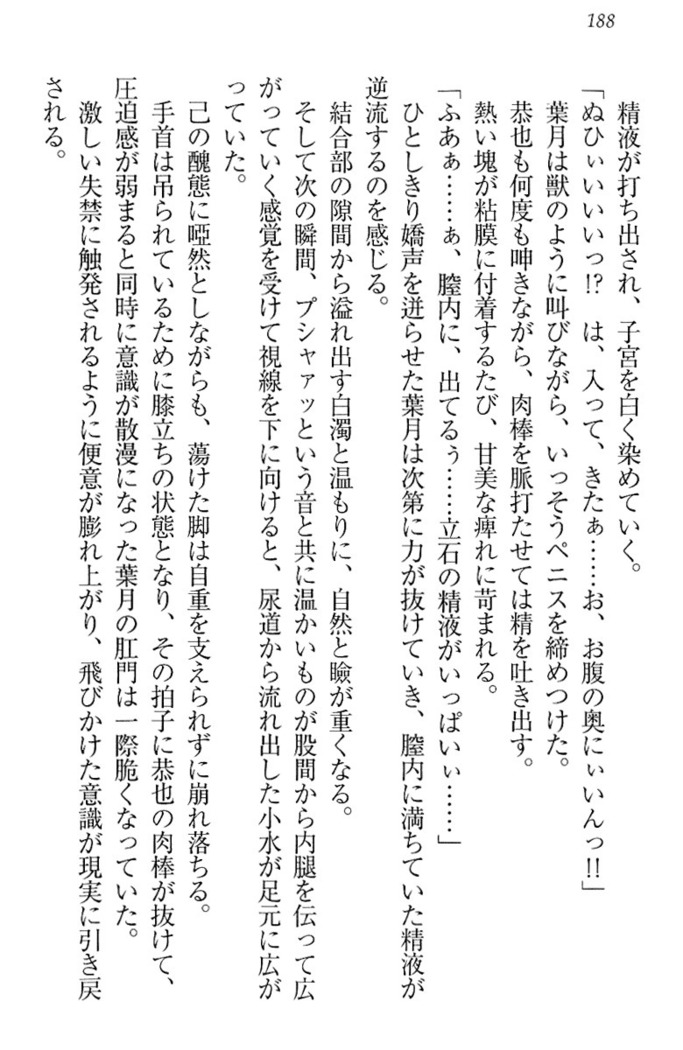 188
精液が打ち出され、子宮を白く染めていく。
「ぬひぃいいいっ!?　は、入って、きたぁ……お、お腹の奥にぃいんっ!!」
葉月は獣のように叫びながら、いっそうペニスを締めつけた。
恭也も何度も呻きながら、肉棒を脈打たせては精を吐き出す。
熱い塊が粘膜に付着するたび、甘美な痺れに苛まれる。
「ふあぁ……ぁ、膣内に、出てるぅ……立石の精液がいっぱいぃ……」
ひとしきり嬌声を迸らせた葉月は次第に力が抜けていき、膣内に満ちていた精液が
逆流するのを感じる。
結合部の隙間から溢れ出す白濁と温もりに、自然と瞼が重くなる。
そして次の瞬間、プシャァッという音と共に温かいものが股間から内腿を伝って広
がっていく感覚を受けて視線を下に向けると、尿道から流れ出した小水が足元に広が
っていた。
己の醜態に啞然としながらも、蕩けた脚は自重を支えられずに崩れ落ちる。
手首は吊られているために膝立ちの状態となり、その拍子に恭也の肉棒が抜けて、
圧迫感が弱まると同時に意識が散漫になった葉月の肛門は一際脆くなっていた。
激しい失禁に触発されるように便意が膨れ上がり、飛びかけた意識が現実に引き戻
される。